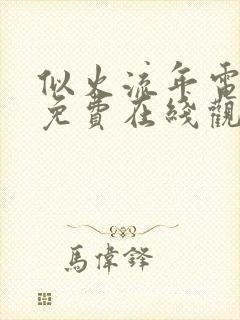 似火流年電
免費在綫觀
馬偉鋒